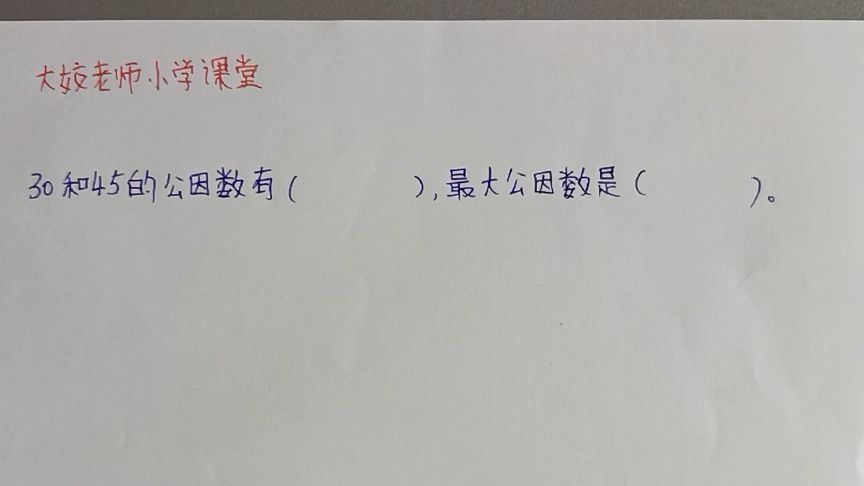 大姣老师小学课堂
30和45的公因数有( ),最大公因数是( )。